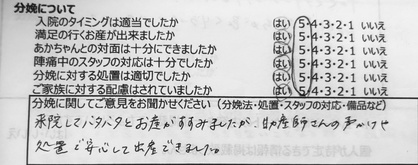 分娩について
入院のタイミングは適当でしたか はい 5・4・3・2・1 いいえ
満足の行くお産が出来ましたか はい 5・4・3・2・1 いいえ
あかちゃんとの対面は十分にできましたか はい 5・4・3・2・1 いいえ
陣痛中のスタッフの対応は十分でしたか はい 5・4・3・2・1 いいえ
分娩に対する処置は適切でしたか はい 5・4・3・2・1 いいえ
ご家族に対する配慮はされていましたか はい 5・4・3・2・1 いいえ
分娩に関してご意見をお聞かせください（分娩法・処置・スタッフの対応・備品など）
来院してバタバタとお産がすすみましたが、助産師さんの声かけや
処置で安心して出産できました。